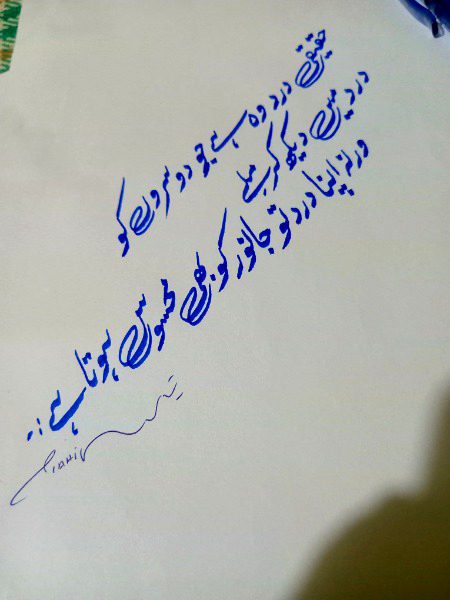 حقیقی درد وہ ہے جو دوسروں کو
درد میں دیکھ کر ملے
ورنہ اپنا درد تو جانور کو بھی محسوس ہوتا ہے :۔